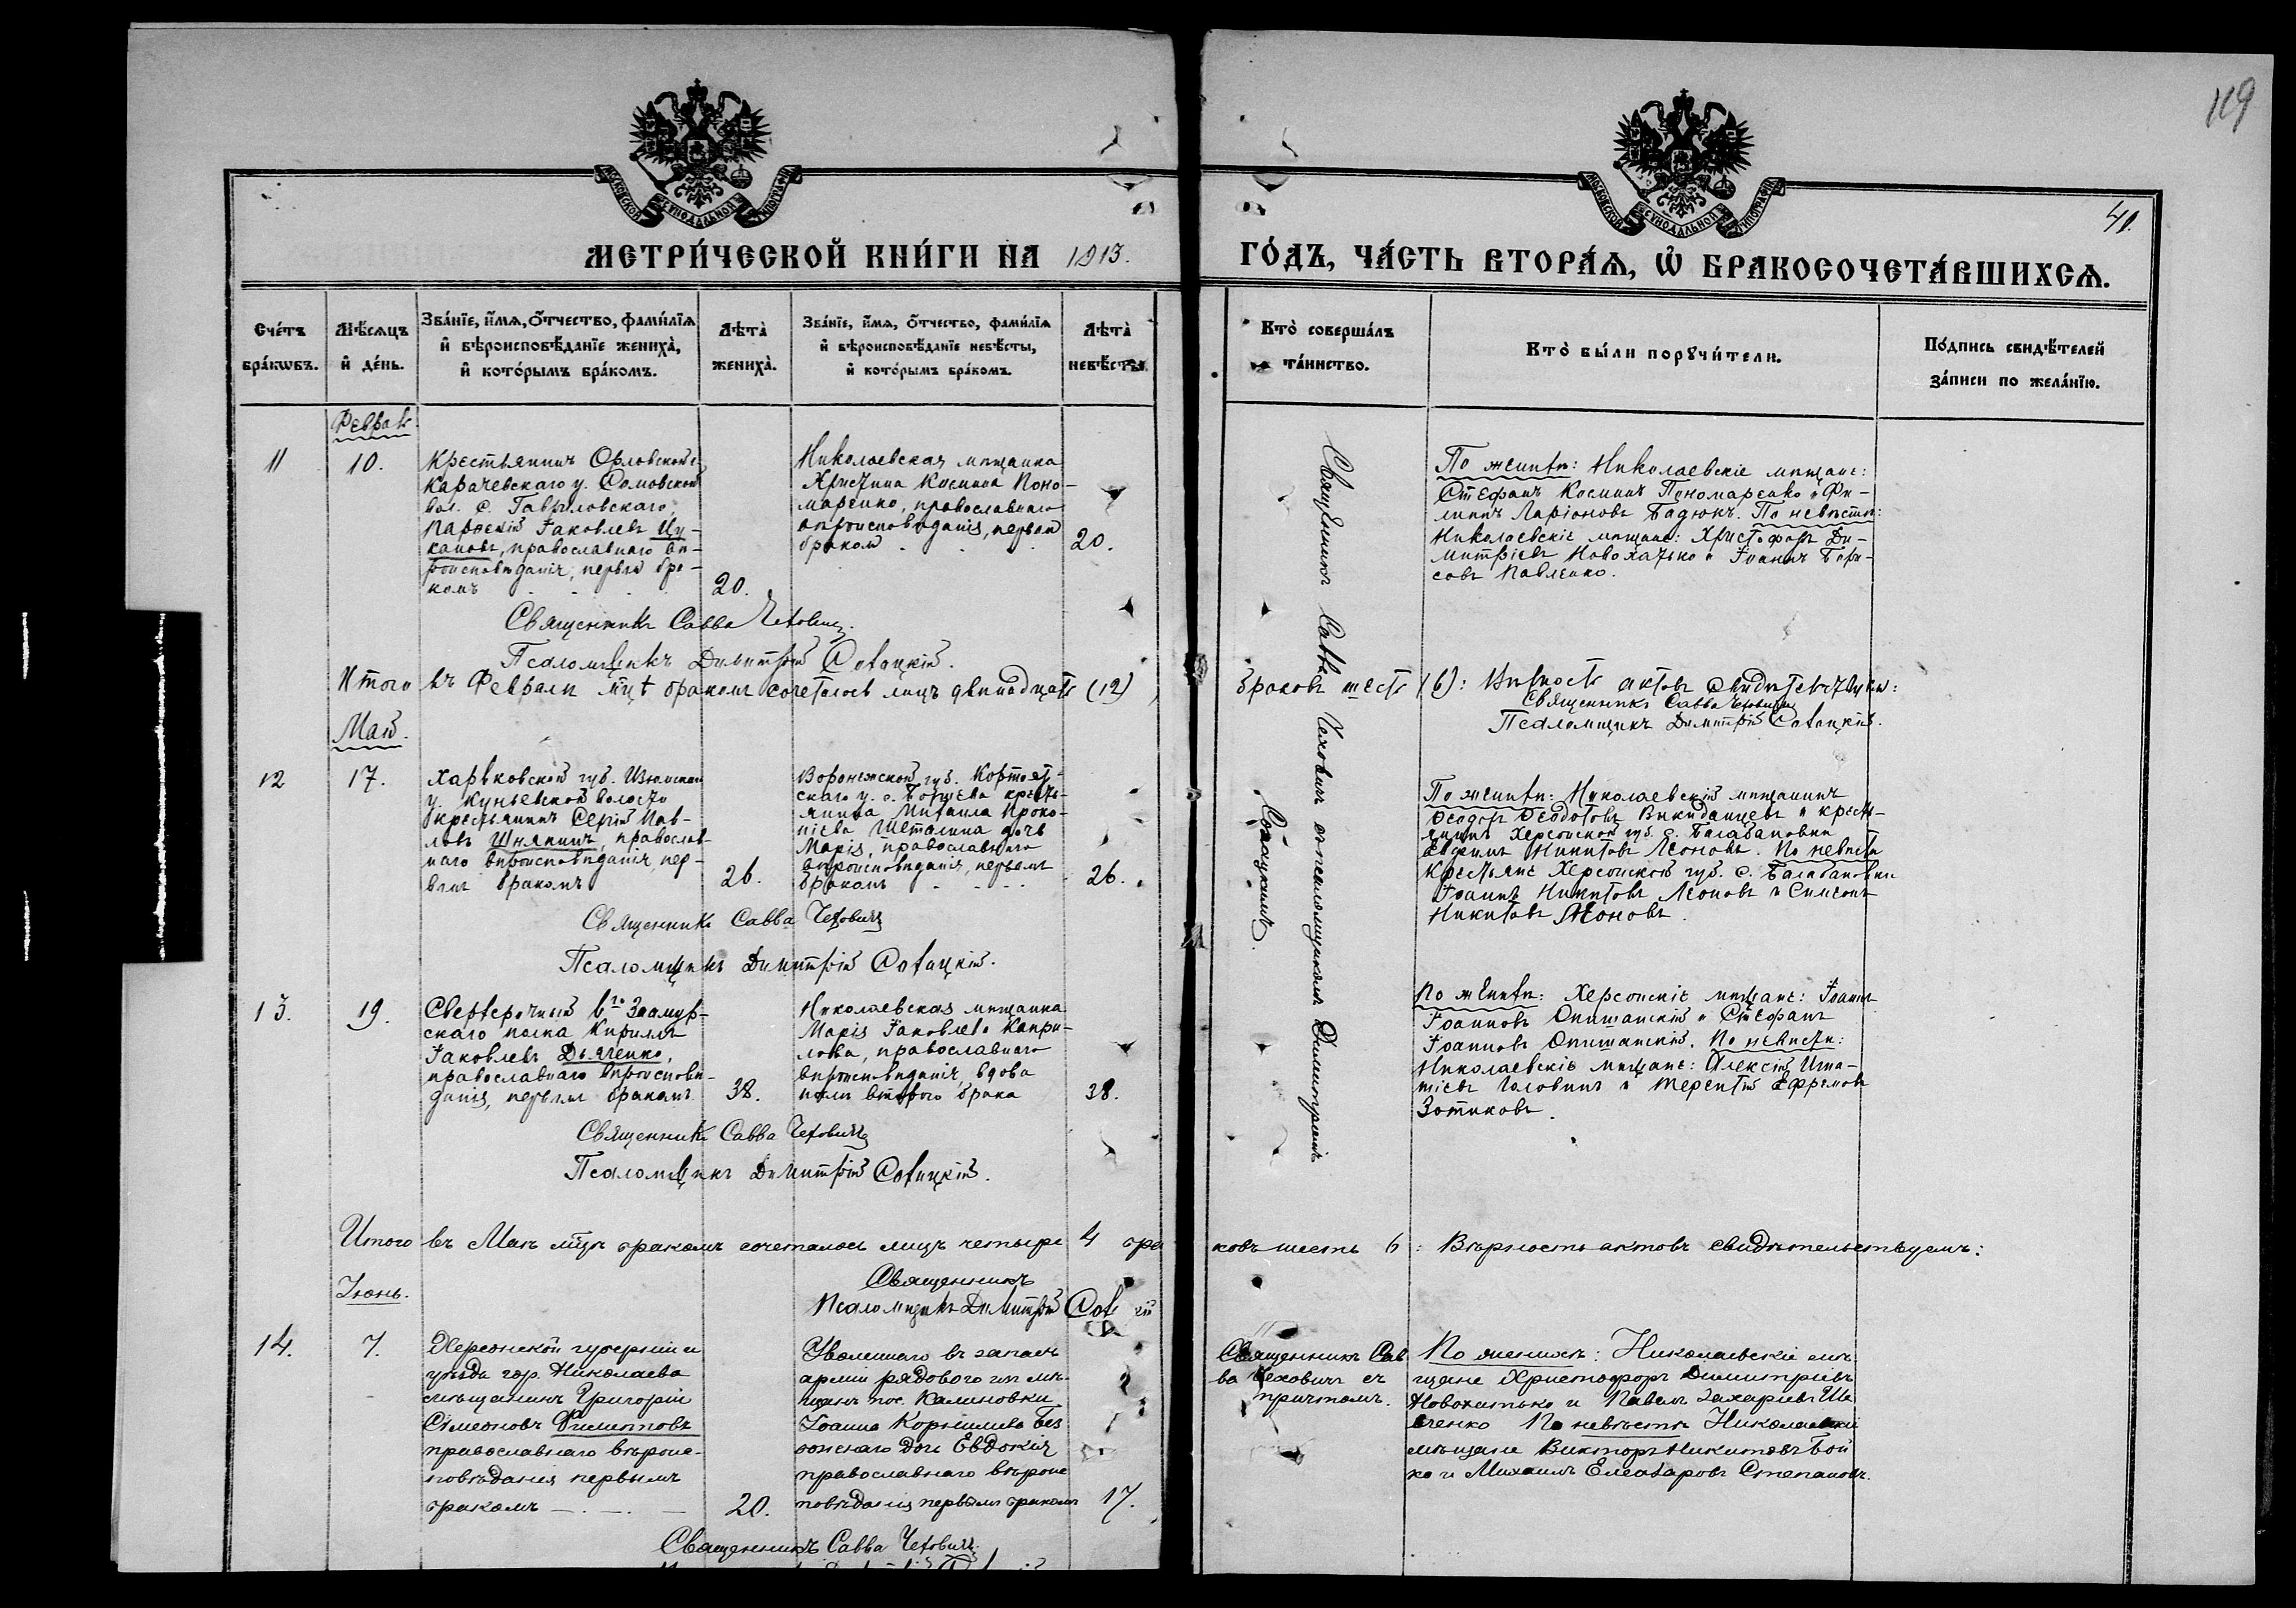 119
41.
МОСКОВСКОЙ СУНОДАЛЬНОЙ ТИПОГРАФІИ
МОСКОВСКОЙ СУНОДАЛЬНОЙ ТИПОГРАФІИ
МЕТРИ́ЧЕСКОЙ КНИ́ГИ НА 1913.
ГО́ДЪ, ЧА́СТЬ ВТОРА́Ѧ, Ѽ БРАКОСОЧЕТА́ВШИХСѦ.
Сче́тъ
бра́кѡвъ.
Мѣ́сѧцъ
и҆ де́нь.
Зва́нїе, и҆́мѧ, ѻ҆́тчество, фами́лїѧ
и҆ вѣроисповѣ́данїе жениха̀,
и҆ кото́рымъ бра́комъ.
Лѣта̀
жениха̀.
Зва́нїе, и҆́мѧ, ѻ҆́тчество, фами́лїѧ
и҆ вѣроисповѣ́данїе невѣ́сты,
и҆ кото́рымъ бра́комъ.
Лѣта̀
невѣ́сты.
Кто̀ соверша́лъ
та́инство.
Кто̀ бы́ли порꙋчи́тели.
По́дпись свидѣ́телей
за́писи по жела́нїю.
Февраль
11
10.
Крестьянинъ Орловской г.
Карачевскаго у. Сомовской
вол. с. Гавриловскаго,
Парѳеній Іаковлевъ Цу-
кановъ, православнаго вѣ-
роисповѣданія, первый бра-
комъ
20.
Николаевская мѣщанка
Христина Космина Поно-
маренко, православнаго
вѣроисповѣданія, первым
браком
20.
По женихѣ: Николаевскіе мѣщане:
Стефанъ Косминъ Пономаренко и Фи-
липпъ Ларіоновъ Бадюкъ. По невѣстѣ:
Николаевскіе мѣщане: Христофоръ Ди-
митріевъ Новохатько и Іоаннъ Бори-
совъ Павленко.
Священникъ Савва Чеховичъ.
Псаломщикъ Димитрій Сотацкій.
Священникъ Савва Чеховичъ съ псаломщикомъ Димитріемъ
Сотацкимъ.
Итого въ Февралѣ мцѣ бракомъ сочеталось лицъ двѣнадцать (12),
браковъ шесть (6): Вѣрность актовъ свидѣтельствуемъ:
Священникъ Савва Чеховичъ
Псаломщикъ Димитрій Сотацкій.
Май.
12
17.
Харьковской губ. Изюмскаго
у. Куньевской волости
крестьянинъ Сергій Пав-
ловъ Шнякинъ, православ-
наго вѣроисповѣданія, пер-
вым бракомъ
26.
Воронежской губ. Коротояк-
скаго у. с. Борщева кресть-
янина Михаила Проко-
піева Шеталина дочь
Марія, православнаго
вѣроисповѣданія, первымъ
бракомъ
26.
По женихѣ: Николаевскій мѣщанинъ
Ѳеодоръ Ѳеодотовъ Выкиданцевъ и кресть-
янинъ Херсонской губ. с. Балабановки
Евфимъ Никитовъ Леоновъ. По невѣстѣ
Крестьяне Херсонской губ. с. Балабановки
Іоаннъ Никитовъ Леоновъ и Симеонъ
Никитовъ Леоновъ.
Священникъ Савва Чеховичъ
Псаломщикъ Димитрій Сотацкій.
13.
19.
Сверхсрочный 6го Заамур-
скаго полка Кириллъ
Іаковлевъ Дьяченко,
православнаго вѣроисповѣ-
данія, первым бракомъ
38.
Николаевская мѣщанка
Марія Іаковлева Капри-
лова, православнаго
вѣроисповѣданія, вдова
послѣ второго брака
38.
По женихѣ: Херсонскіе мѣщане: Іоаннъ
Іоанновъ Опишанскій и Стефанъ
Іоанновъ Опишанскій. По невѣстѣ:
Николаевскіе мѣщане: Алексій Игна-
тіевъ Головинъ и Терентій Ефремовъ
Зотиковъ.
Священникъ Савва Чеховичъ
Псаломщикъ Димитрій Сотацкій.
Итого въ Маѣ мцѣ бракомъ сочеталось лицъ четыре 4 бра
ковъ шесть 6: Вѣрность актовъ свидѣтельствуемъ:
Священникъ
Псаломщикъ Димитрій Сот ій
Іюнь.
14.
7.
Херсонской губерніи и
уѣзда гор. Николаева
мѣщанинъ Григорій
Симеоновъ Филиповъ
православнаго вѣроис-
повѣданія первымъ
бракомъ
20.
Уволеннаго въ запасъ
арміи рядового изъ мѣ-
щанъ пос. Калиновки
Іоанна Корнилиева Без
дочь Евдокія
православнаго вѣроис
повѣданія первымъ бракомъ
17.
Священникъ Сав
ва Чеховичъ съ
причтомъ.
По женихѣ: Николаевскіе мѣ-
щане Христофоръ Димитріевъ
Новохатько и Павелъ Захаріевъ Ше
вченко По невѣстѣ Николаевскіе
мѣщане Викторъ Никитовъ Бой
ко и Михаилъ Елеазаровъ Степановъ.
Священникъ Савва Чеховичъ.